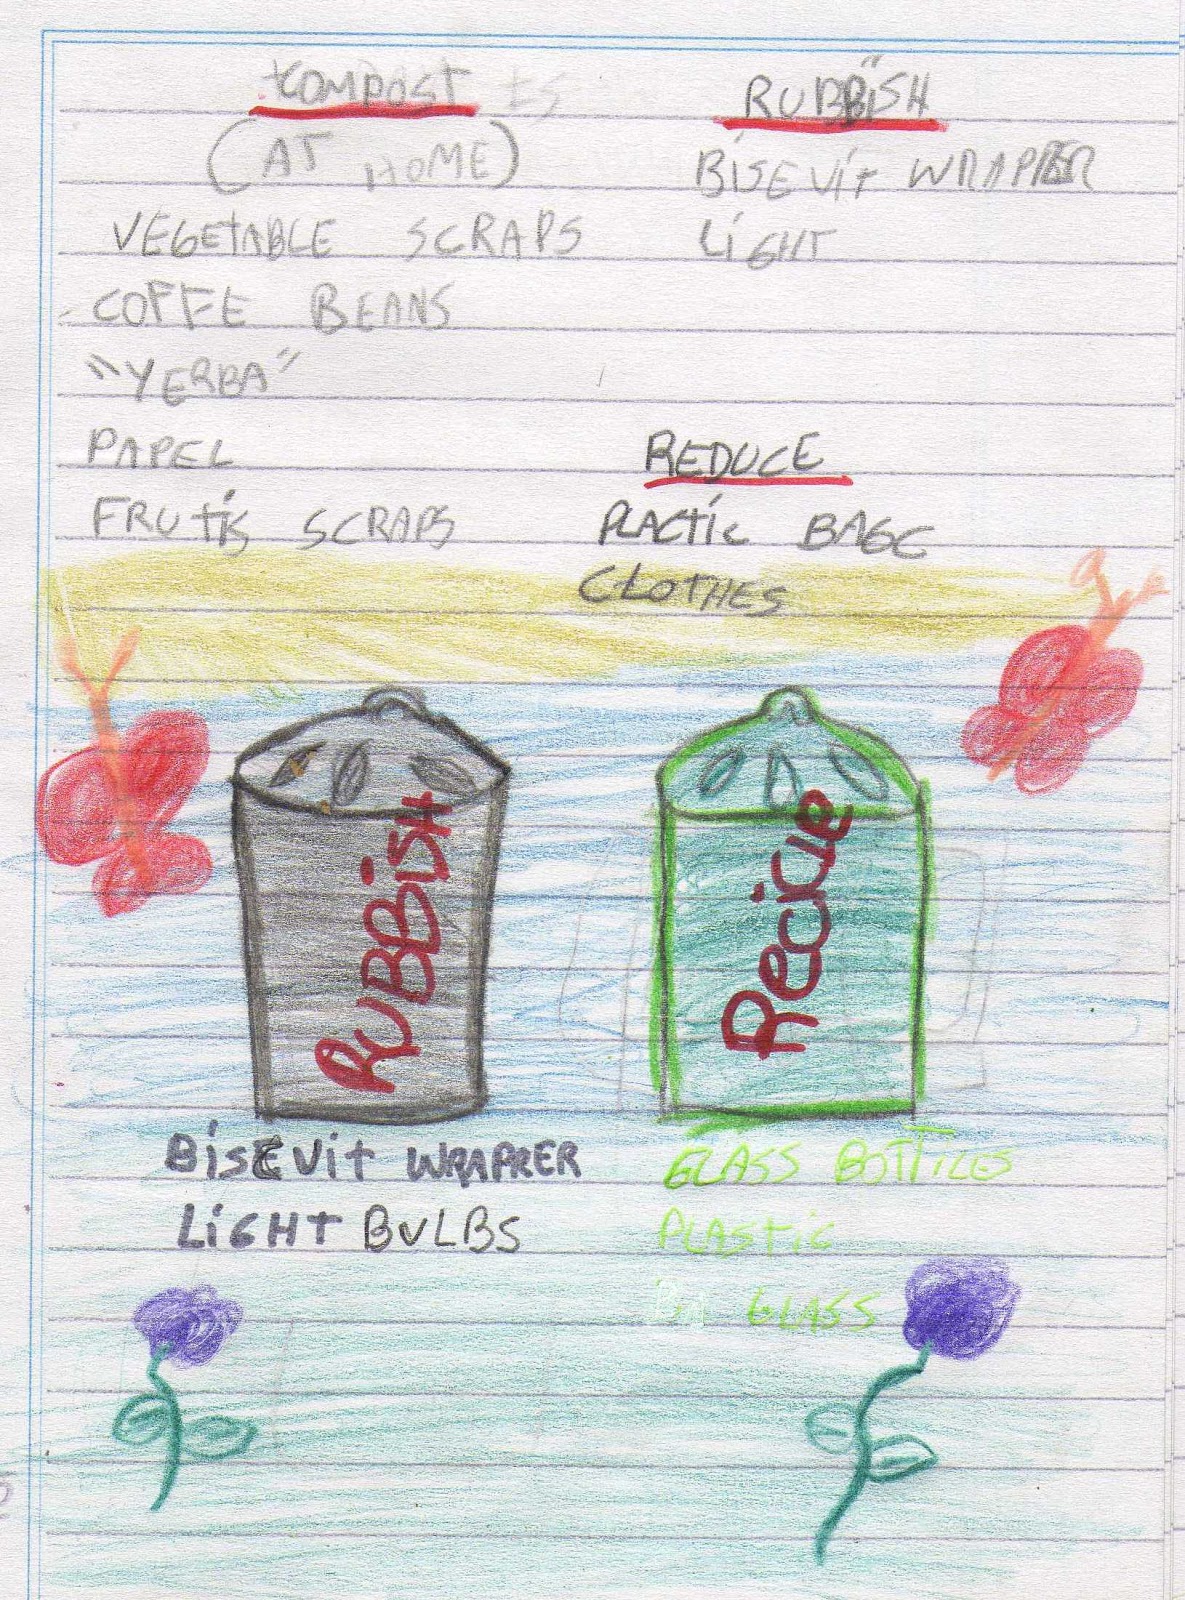 COMPOST
(AT HOME)
VEGETABLE SCRAPS
COFFE BEANS
"YERBA"
PAPEL
FRUTIS SCRAPS
RUBBISH
BISEVIT WRAPPER
LIGHT
REDUCE
PLACTIC BAGC
CLOTHES
RUBBiSH
Recicle
BISCVIT WRAPPER
LIGHT BULBS
GLASS BOTTLES
PLASTIC
GLASS